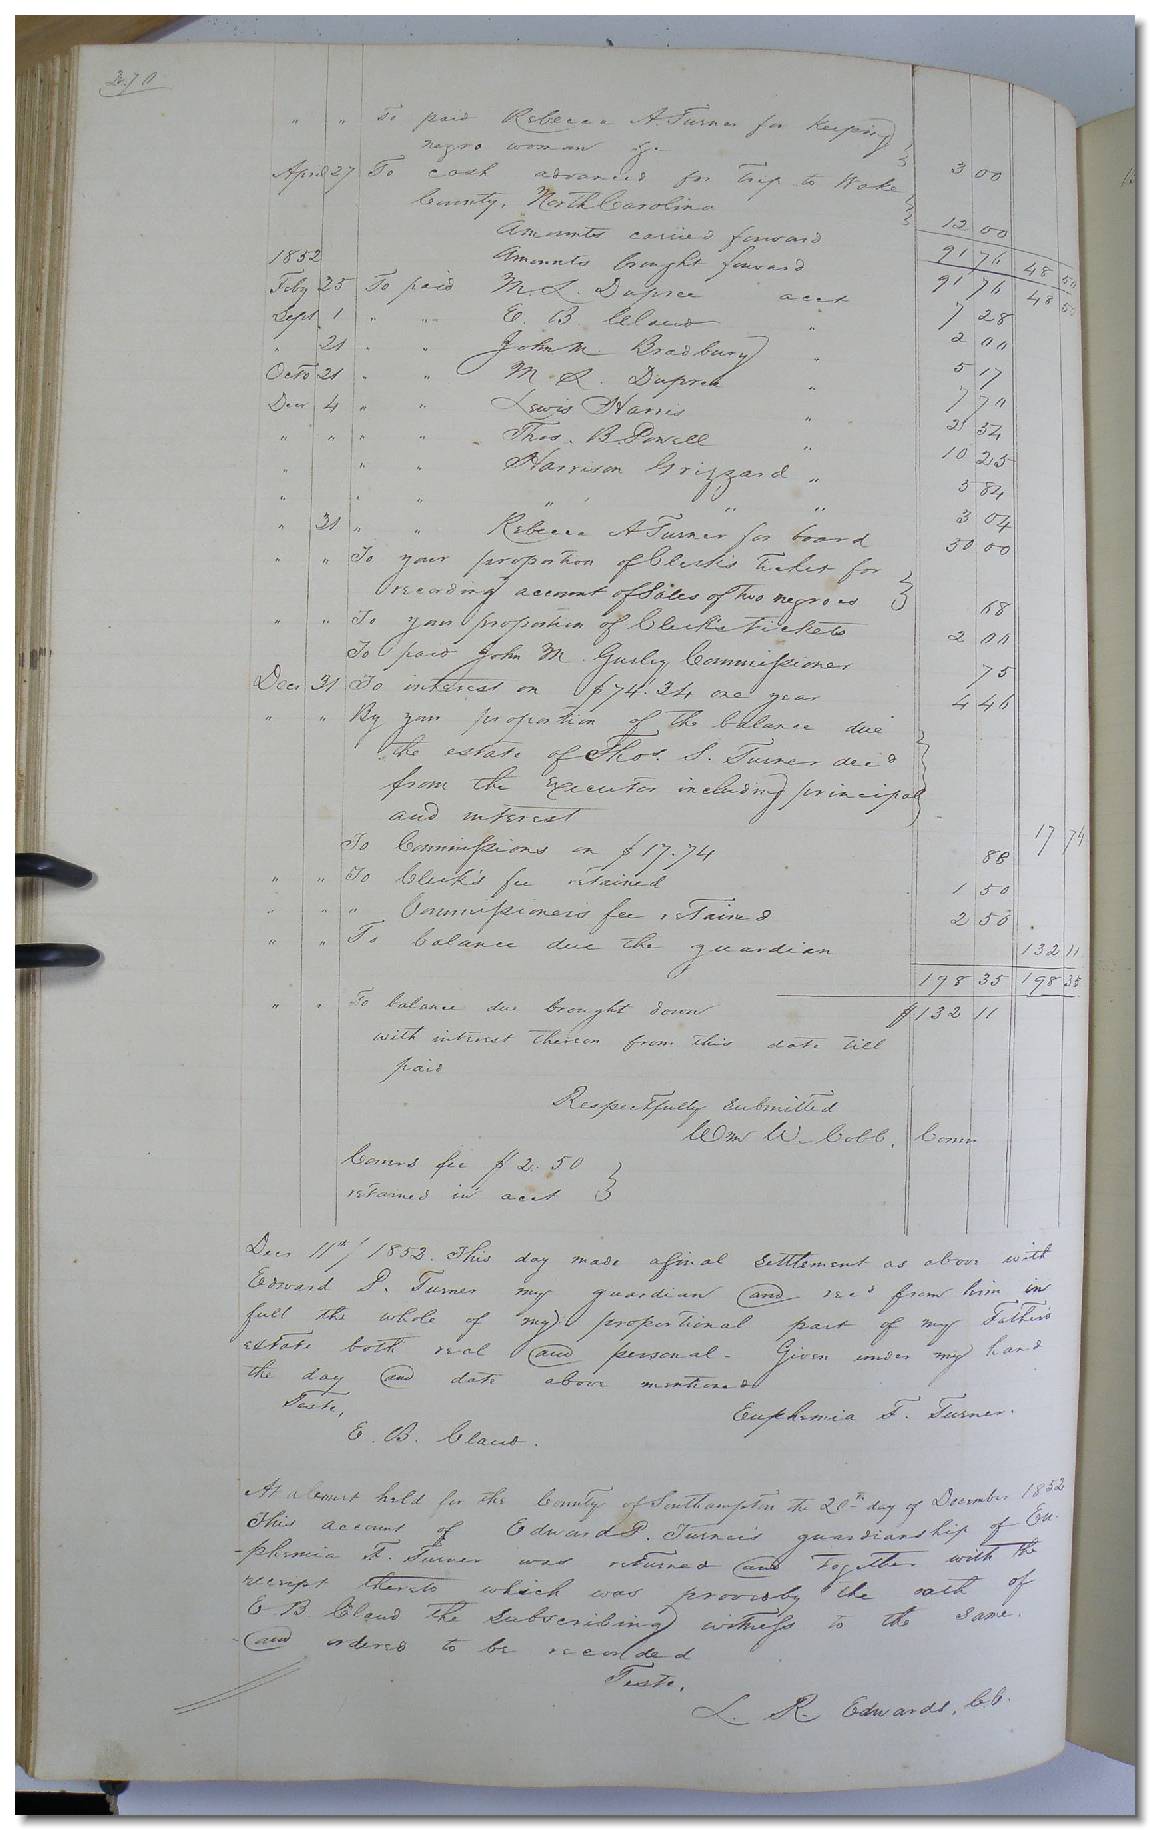 270
" " To paid Rebecca A Turner for Keeping
negro woman &c 3 00
April 27 To cash advanced for trip to Wake
County, North Carolina 12 00
Amounts carried forward 91 76 48 50
1852 Amounts brought forward 91 76 48 50
Feby 25 To paid M. L. Dupree acct 7 28
Sept 1 " " E. B Claud " 2 00
" 21 " " John M Bradbury " 5 17
Octo 21 " " M. L. Dupree " 7 70
Decr 4 " " Lewis Harris " 2 34
" " " " Thos. B Powell " 10 25
" " " Harrison Grizzard " 3 84
" " " " " " 3 04
" 31 " " Rebecca A Turner for board 50 00
" " To your proportion of Clerk's ticket for
recording account of Sales of two negroes 68
" " To your proportion of Clerk's Tickets 2 00
To paid John M. Gurley Commissioner 75
Decr 31 To interest on $74.34 one year 4 46
" " By your proportion of the balance due
the estate of Thos. S. Turner decd
from the executor including principal
and interest 17 74
To Commissions on $17.74 88
" " To Clerk's fee retained 1 50
" " " Commissioner's fee retained 2 50
" " To balance due the guardian 132 11
198 35 198 35
" " To balance due brought down $132 11
with interest thereon from this date till
paid
Respectfully submitted
Wm W. Cobb, Comr
Comrs fee $2.50
retained in acct
Decr 11th / 1852. This day made a final settlement as above with
Edward P. Turner my guardian and recd from him in
full the whole of my proportional part of my Father's
estate both real and personal - Given under my hand
the day and date above mentioned
Teste, Euphemia F. Turner.
E. B. Claud.
At a Court held for the County of Southampton the 20th day of December 1852
This account of Edward P. Turner's guardianship of Eu-
-phemia F. Turner was returned and together with the
receipt thereto which was proved by the oath of
E B. Claud the subscribing witness to the same.
and ordered to be recorded
Teste,
L. R. Edwards, C.C.